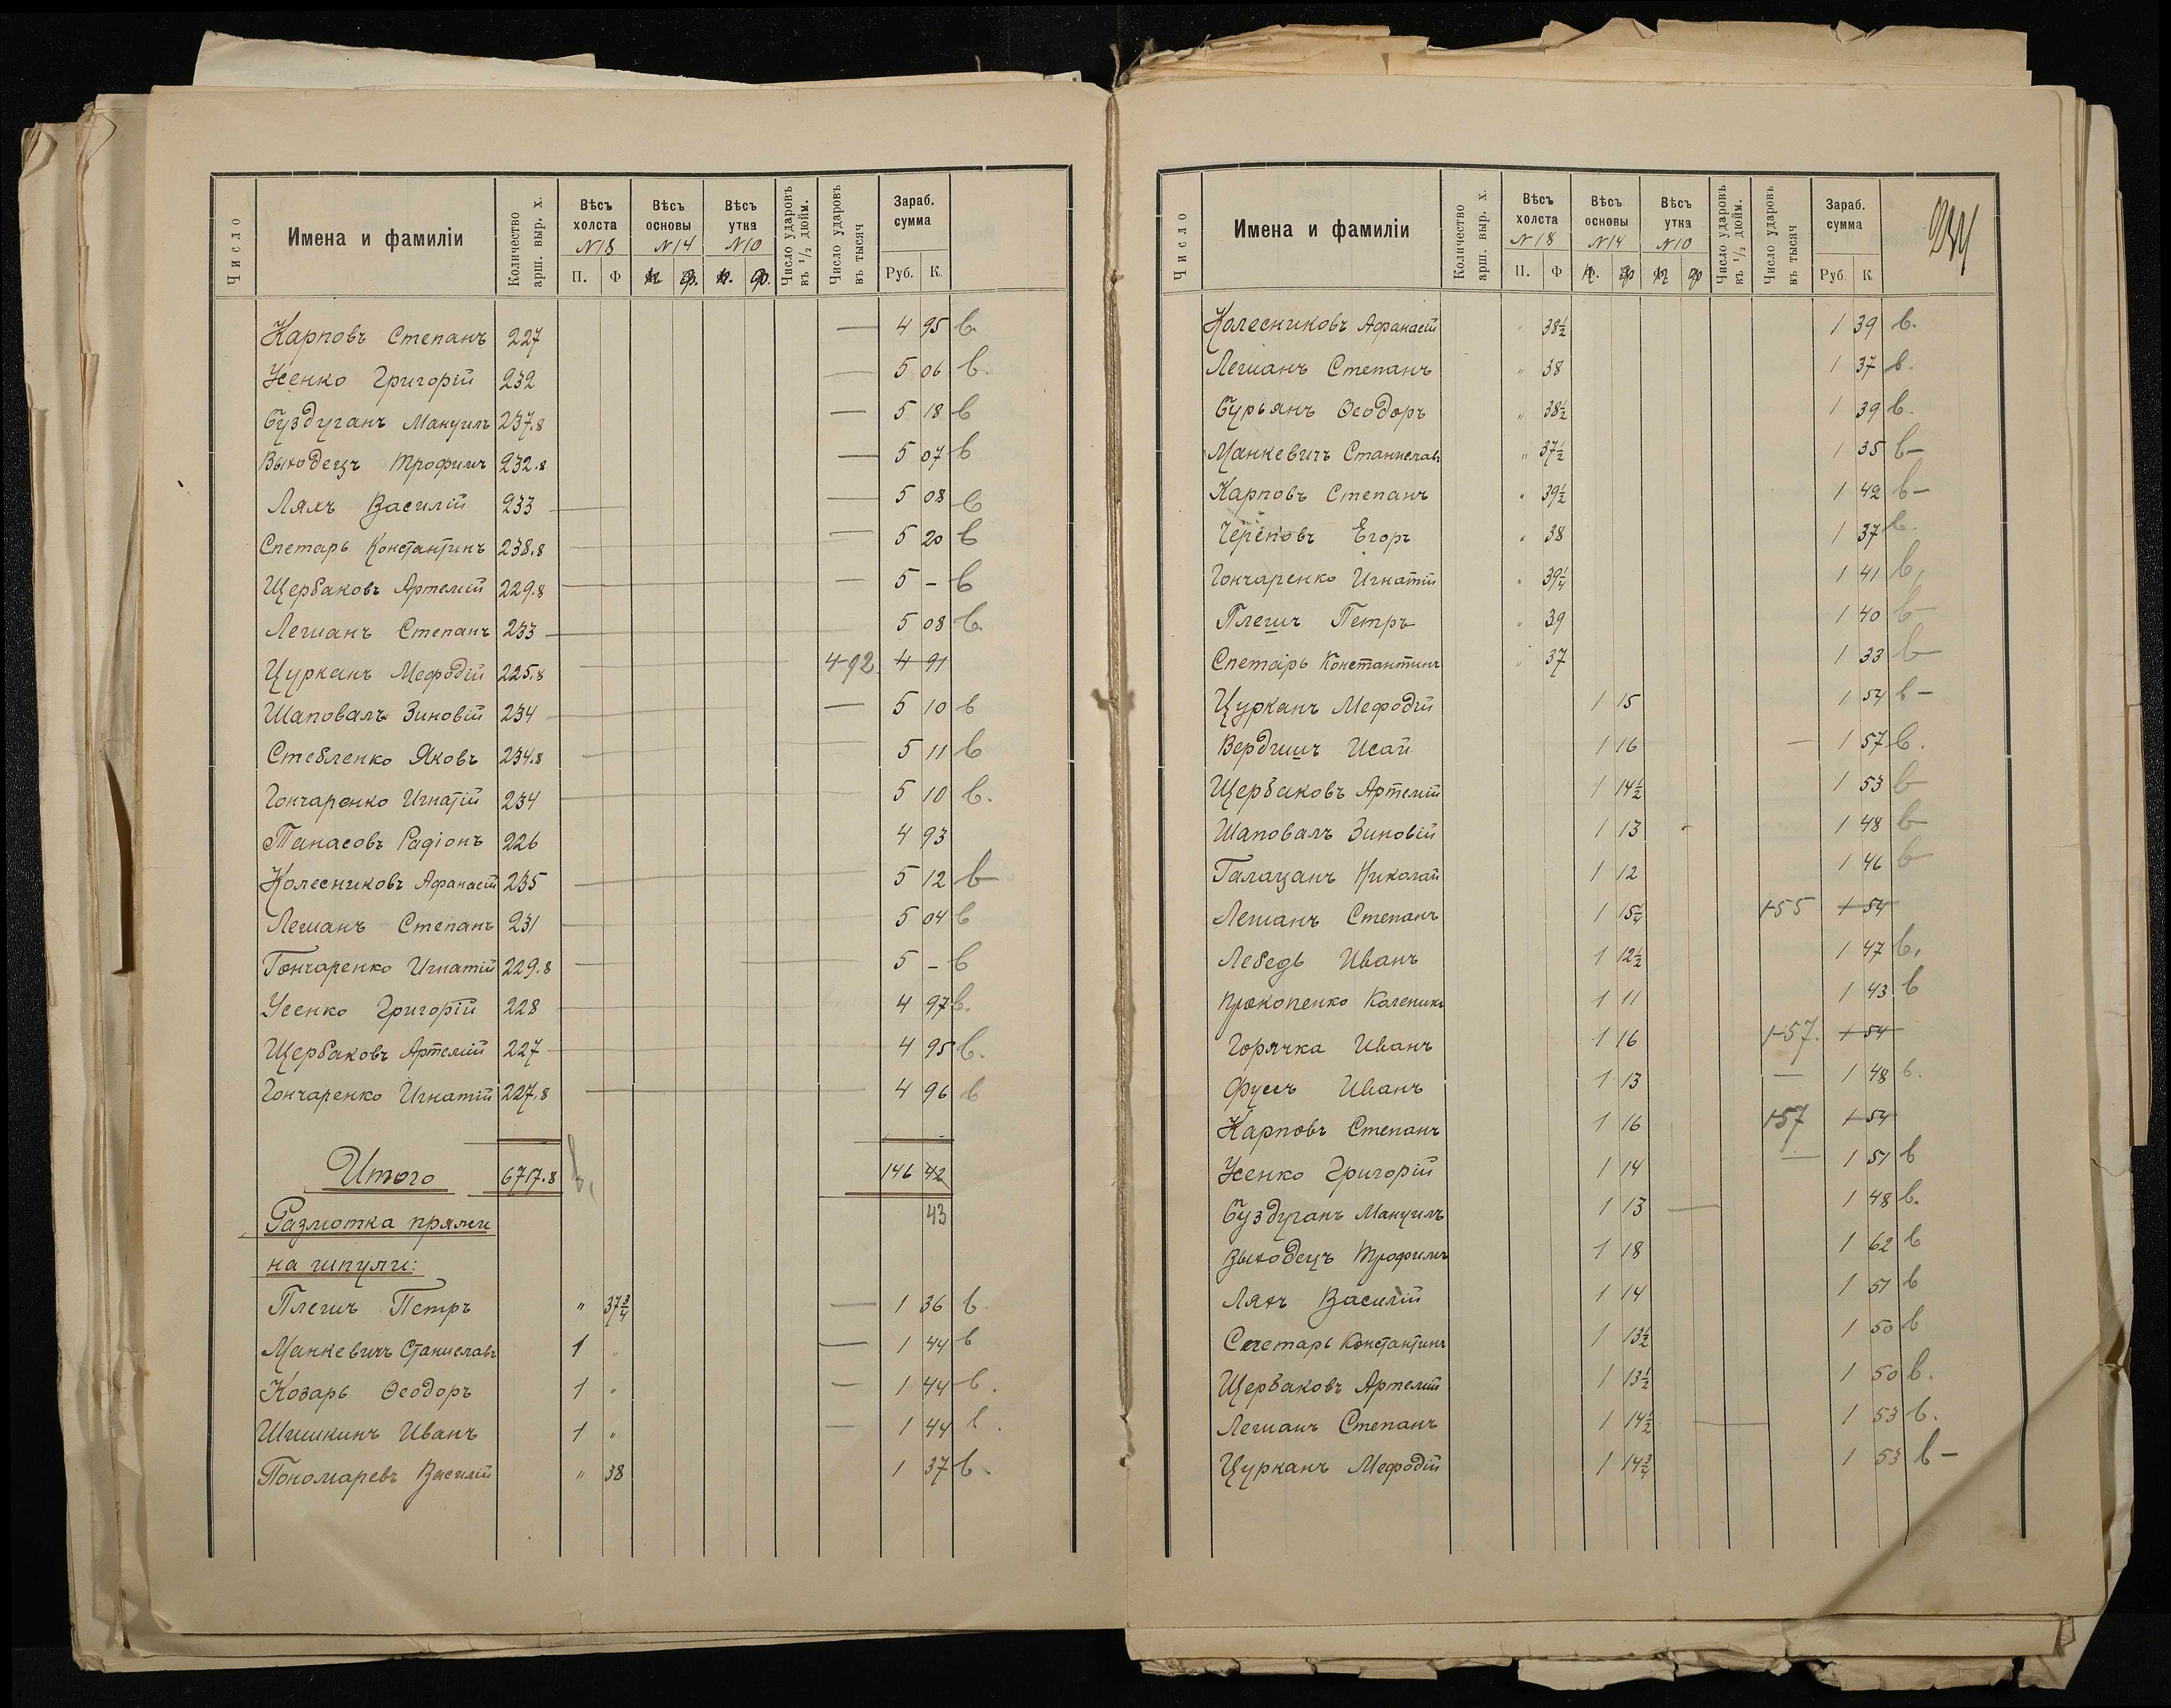 Число Имена и фамиліи Количество арш. выр. х. Вѣсъ холста №18 П. Ф Вѣсъ основы №14 п. ф. Вѣсъ утка №10 п. ф. Число ударовъ въ 1/2 дюйм. Число ударовъ въ тысяч Зараб. сумма Руб. К.
Карповъ Степанъ 227 — 4 95 в.
Усенко Григорій 232 — 5 06 в.
Буздуганъ Мануилъ 237.8 — 5 18 в
Выходецъ Трофимъ 232.8 — 5 07 в
Ляхъ Василій 233 — 5 08 в
Спетарь Константинъ 238.8 — 5 20 в
Щербаковъ Артемій 229.8 — 5 – в
Лешанъ Степанъ 233 — 5 08 в.
Цурканъ Мефодій 225.8 4-92 4 91
Шаповалъ Зиновій 234 — 5 10 в
Стебленко Яковъ 234.8 — 5 11 в
Гончаренко Игнатій 234 — 5 10 в.
Танасовъ Радіонъ 226 4 93
Колесниковъ Афанасій 235 — 5 12 в
Лешанъ Степанъ 231 — 5 04 в
Гончаренко Игнатій 229.8 — 5 – в
Усенко Григорій 228 — 4 97 в.
Щербаковъ Артемій 227 — 4 95 в.
Гончаренко Игнатій 227.8 — 4 96 в
Итого 6717.8 в. 146 42
43
Размотка пряжи
на шпули:
Плешъ Петръ " 37 3/4 — 1 36 в.
Манкевичъ Станиславъ 1 " — 1 44 в
Козарь Ѳеодоръ 1 " — 1 44 в.
Шишкинъ Иванъ 1 " — 1 44 в.
Пономаревъ Василій " 38 1 37 в.
Число Имена и фамиліи Количество арш. выр. х. Вѣсъ холста №18 П. Ф Вѣсъ основы №14 п. ф Вѣсъ утка №10 п ф Число ударовъ въ 1/2 дюйм. Число ударовъ въ тысяч Зараб. сумма Руб. К.
Колесниковъ Афанасій " 38 1/2 1 39 в.
Лешанъ Степанъ " 38 1 37 в.
Бурьянъ Ѳеодоръ " 38 1/2 1 39 в.
Манкевичъ Станиславъ " 37 1/2 1 35 в–
Карповъ Степанъ " 39 1/2 1 42 в–
Череповъ Егоръ " 38 1 37 в.
Гончаренко Игнатій " 39 1/4 1 41 в.
Плешъ Петръ " 39 1 40 в
Спетарь Константинъ " 37 1 33 в
Цурканъ Мефодій 1 15 1 54 в–
Вердишъ Исай 1 16 — 1 57 в.
Щербаковъ Артемій 1 14 1/2 1 53 в
Шаповалъ Зиновій 1 13 1 48 в
Галацанъ Николай 1 12 1 46 в
Лешанъ Степанъ 1 15 1/4 1-55 1 54
Лебедь Иванъ 1 12 1/2 1 47 в.
Прокопенко Каленикъ 1 11 1 43 в
Горячка Иванъ 1 16 1-57. 1 54
Фуссъ Иванъ 1 13 — 1 48 в.
Карповъ Степанъ 1 16 1-57 1 54
Усенко Григорій 1 14 — 1 51 в
Буздуганъ Мануилъ 1 13 — 1 48 в.
Выходецъ Трофимъ 1 18 1 62 в
Ляхъ Василій 1 14 1 51 в
Спетарь Константинъ 1 13 1/2 1 50 в
Щербаковъ Артемій 1 13 1/2 1 50 в.
Лешанъ Степанъ 1 14 1/2 — 1 53 в.
Цурканъ Мефодій 1 14 3/4 1 53 в–